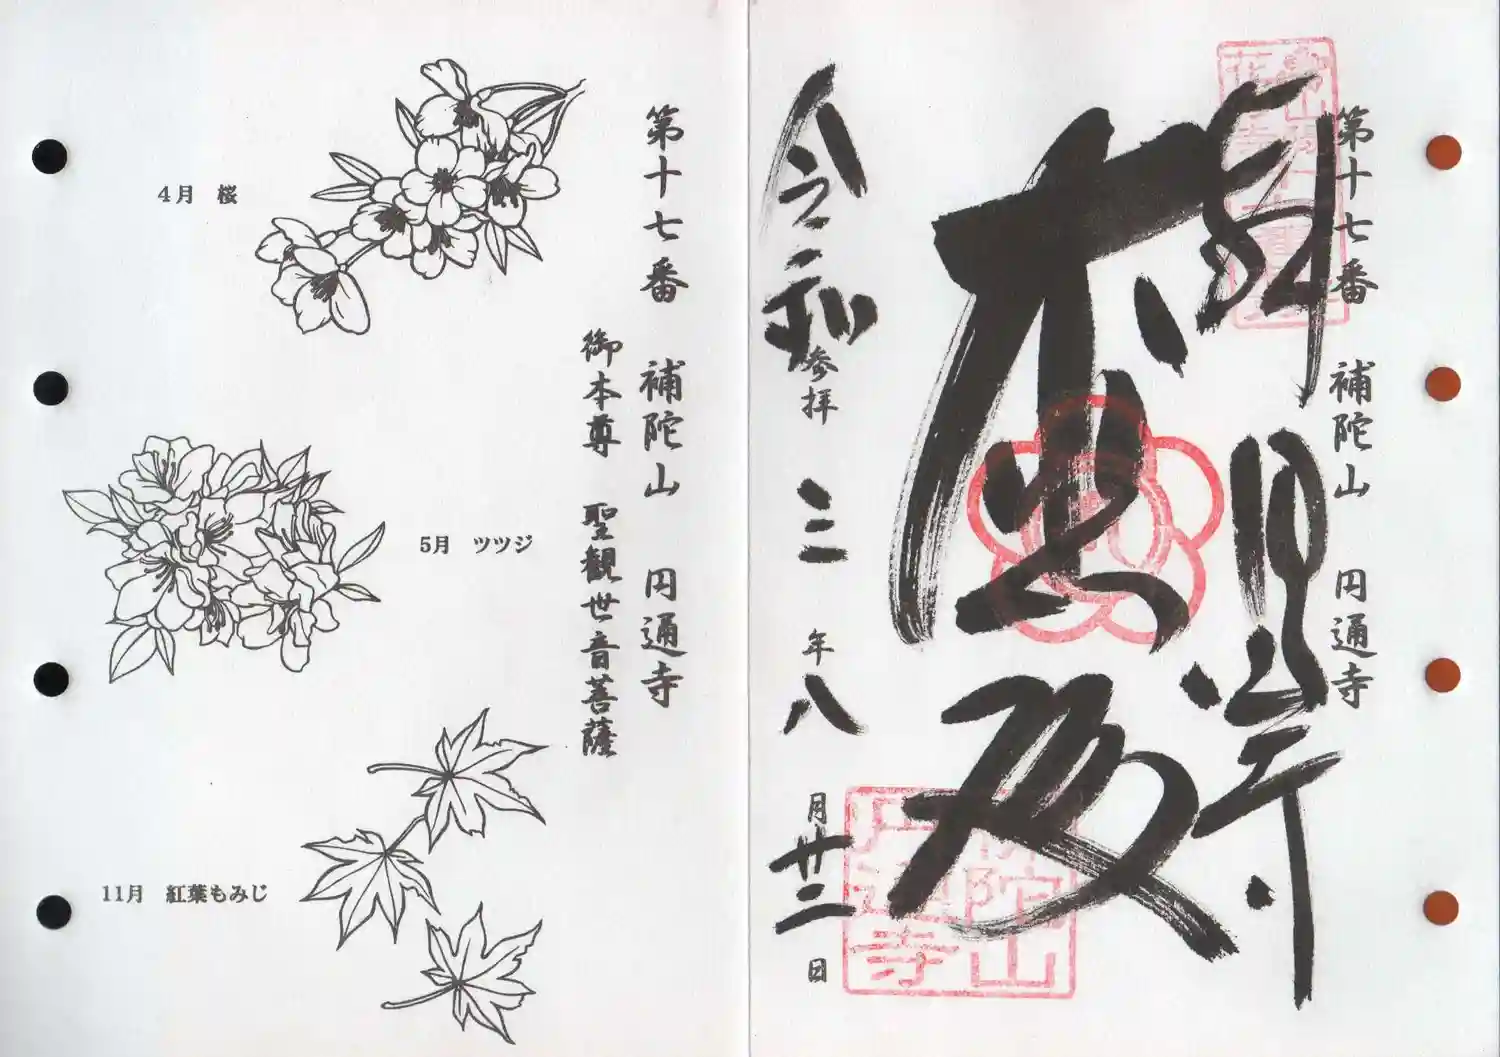 第十七番 補陀山 円通寺
御本尊 聖観世音菩薩
4月 桜
5月 ツツジ
11月 紅葉もみじ
第十七番 補陀山 円通寺
奉拝
大悲殿
円通寺
令和参拝 三年八月廿二日
補陀山
円通寺